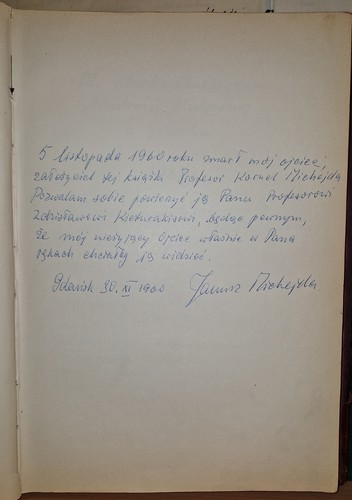 5 listopada 1960 roku zmarł mój ojciec,
założyciel tej książki Profesor Kornel Michejda
Pozwalam sobie powierzyć ją Panu Profesorowi
Zdzisławowi Kieturakisowi, będąc pewnym,
że mój nieżyjący Ojciec właśnie w Pana
rękach chciałby ją widzieć.
Gdańsk 30. XI 1960 Janusz Michejda